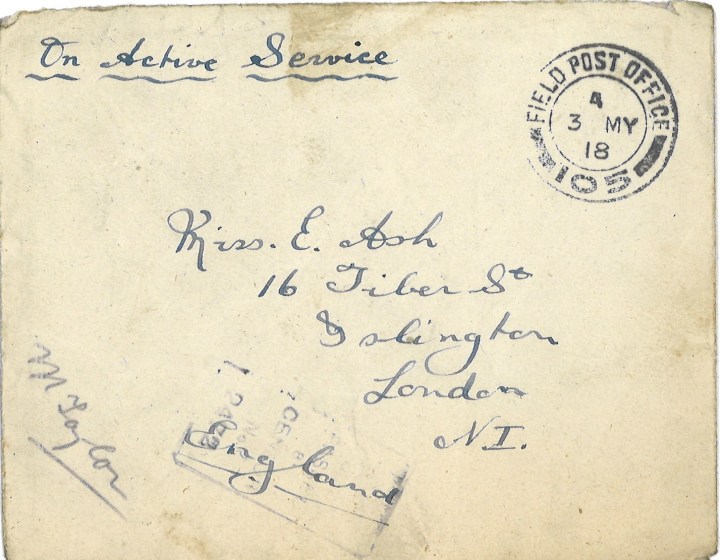 On Active Service
FIELD POST OFFICE
A
3 MY
18
105
Miss. E. Ash
16 Tiber St
Islington
London
N.I.
England
Taylor
CEN
No